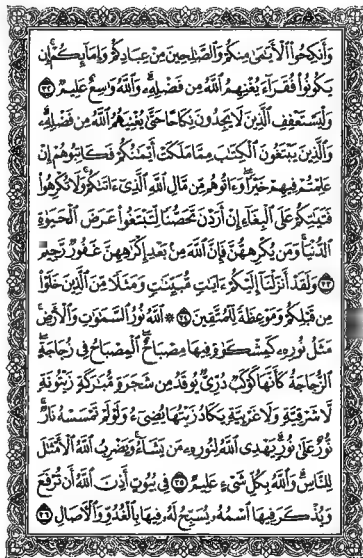 وَأَنكِحُوا۟ ٱلْأَيَـٰمَىٰ مِنكُمْ وَٱلصَّـٰلِحِينَ مِنْ عِبَادِكُمْ وَإِمَآئِكُمْ إِن
يَكُونُوا۟ فُقَرَآءَ يُغْنِهِمُ ٱللَّهُ مِن فَضْلِهِۦ وَٱللَّهُ وَٰسِعٌ عَلِيمٌ ٣٢
وَلْيَسْتَعْفِفِ ٱلَّذِينَ لَا يَجِدُونَ نِكَاحًا حَتَّىٰ يُغْنِيَهُمُ ٱللَّهُ مِن فَضْلِهِۦ
وَٱلَّذِينَ يَبْتَغُونَ ٱلْكِتَـٰبَ مِمَّا مَلَكَتْ أَيْمَـٰنُكُمْ فَكَاتِبُوهُمْ إِنْ
عَلِمْتُمْ فِيهِمْ خَيْرًا وَءَاتُوهُم مِّن مَّالِ ٱللَّهِ ٱلَّذِىٓ ءَاتَىٰكُمْ وَلَا تُكْرِهُوا۟
فَتَيَـٰتِكُمْ عَلَى ٱلْبِغَآءِ إِنْ أَرَدْنَ تَحَصُّنًا لِّتَبْتَغُوا۟ عَرَضَ ٱلْحَيَوٰةِ
ٱلدُّنْيَا وَمَن يُكْرِههُّنَّ فَإِنَّ ٱللَّهَ مِنۢ بَعْدِ إِكْرَٰهِهِنَّ غَفُورٌ رَّحِيمٌ
٣٣ وَلَقَدْ أَنزَلْنَآ إِلَيْكُمْ ءَايَـٰتٍ مُّبَيِّنَـٰتٍ وَمَثَلًا مِّنَ ٱلَّذِينَ خَلَوْا۟
مِن قَبْلِكُمْ وَمَوْعِظَةً لِّلْمُتَّقِينَ ٣٤ ۞ ٱللَّهُ نُورُ ٱلسَّمَـٰوَٰتِ وَٱلْأَرْضِ
مَثَلُ نُورِهِۦ كَمِشْكَوٰةٍ فِيهَا مِصْبَاحٌ ٱلْمِصْبَاحُ فِى زُجَاجَةٍ
ٱلزُّجَاجَةُ كَأَنَّهَا كَوْكَبٌ دُرِّىٌّ يُوقَدُ مِن شَجَرَةٍ مُّبَـٰرَكَةٍ زَيْتُونَةٍ
لَّا شَرْقِيَّةٍ وَلَا غَرْبِيَّةٍ يَكَادُ زَيْتُهَا يُضِىٓءُ وَلَوْ لَمْ تَمْسَسْهُ نَارٌ
نُّورٌ عَلَىٰ نُورٍ يَهْدِى ٱللَّهُ لِنُورِهِۦ مَن يَشَآءُ وَيَضْرِبُ ٱللَّهُ ٱلْأَمْثَـٰلَ
لِلنَّاسِ وَٱللَّهُ بِكُلِّ شَىْءٍ عَلِيمٌ ٣٥ فِى بُيُوتٍ أَذِنَ ٱللَّهُ أَن تُرْفَعَ
وَيُذْكَرَ فِيهَا ٱسْمُهُۥ يُسَبِّحُ لَهُۥ فِيهَا بِٱلْغُدُوِّ وَٱلْـَٔاصَالِ ٣٦